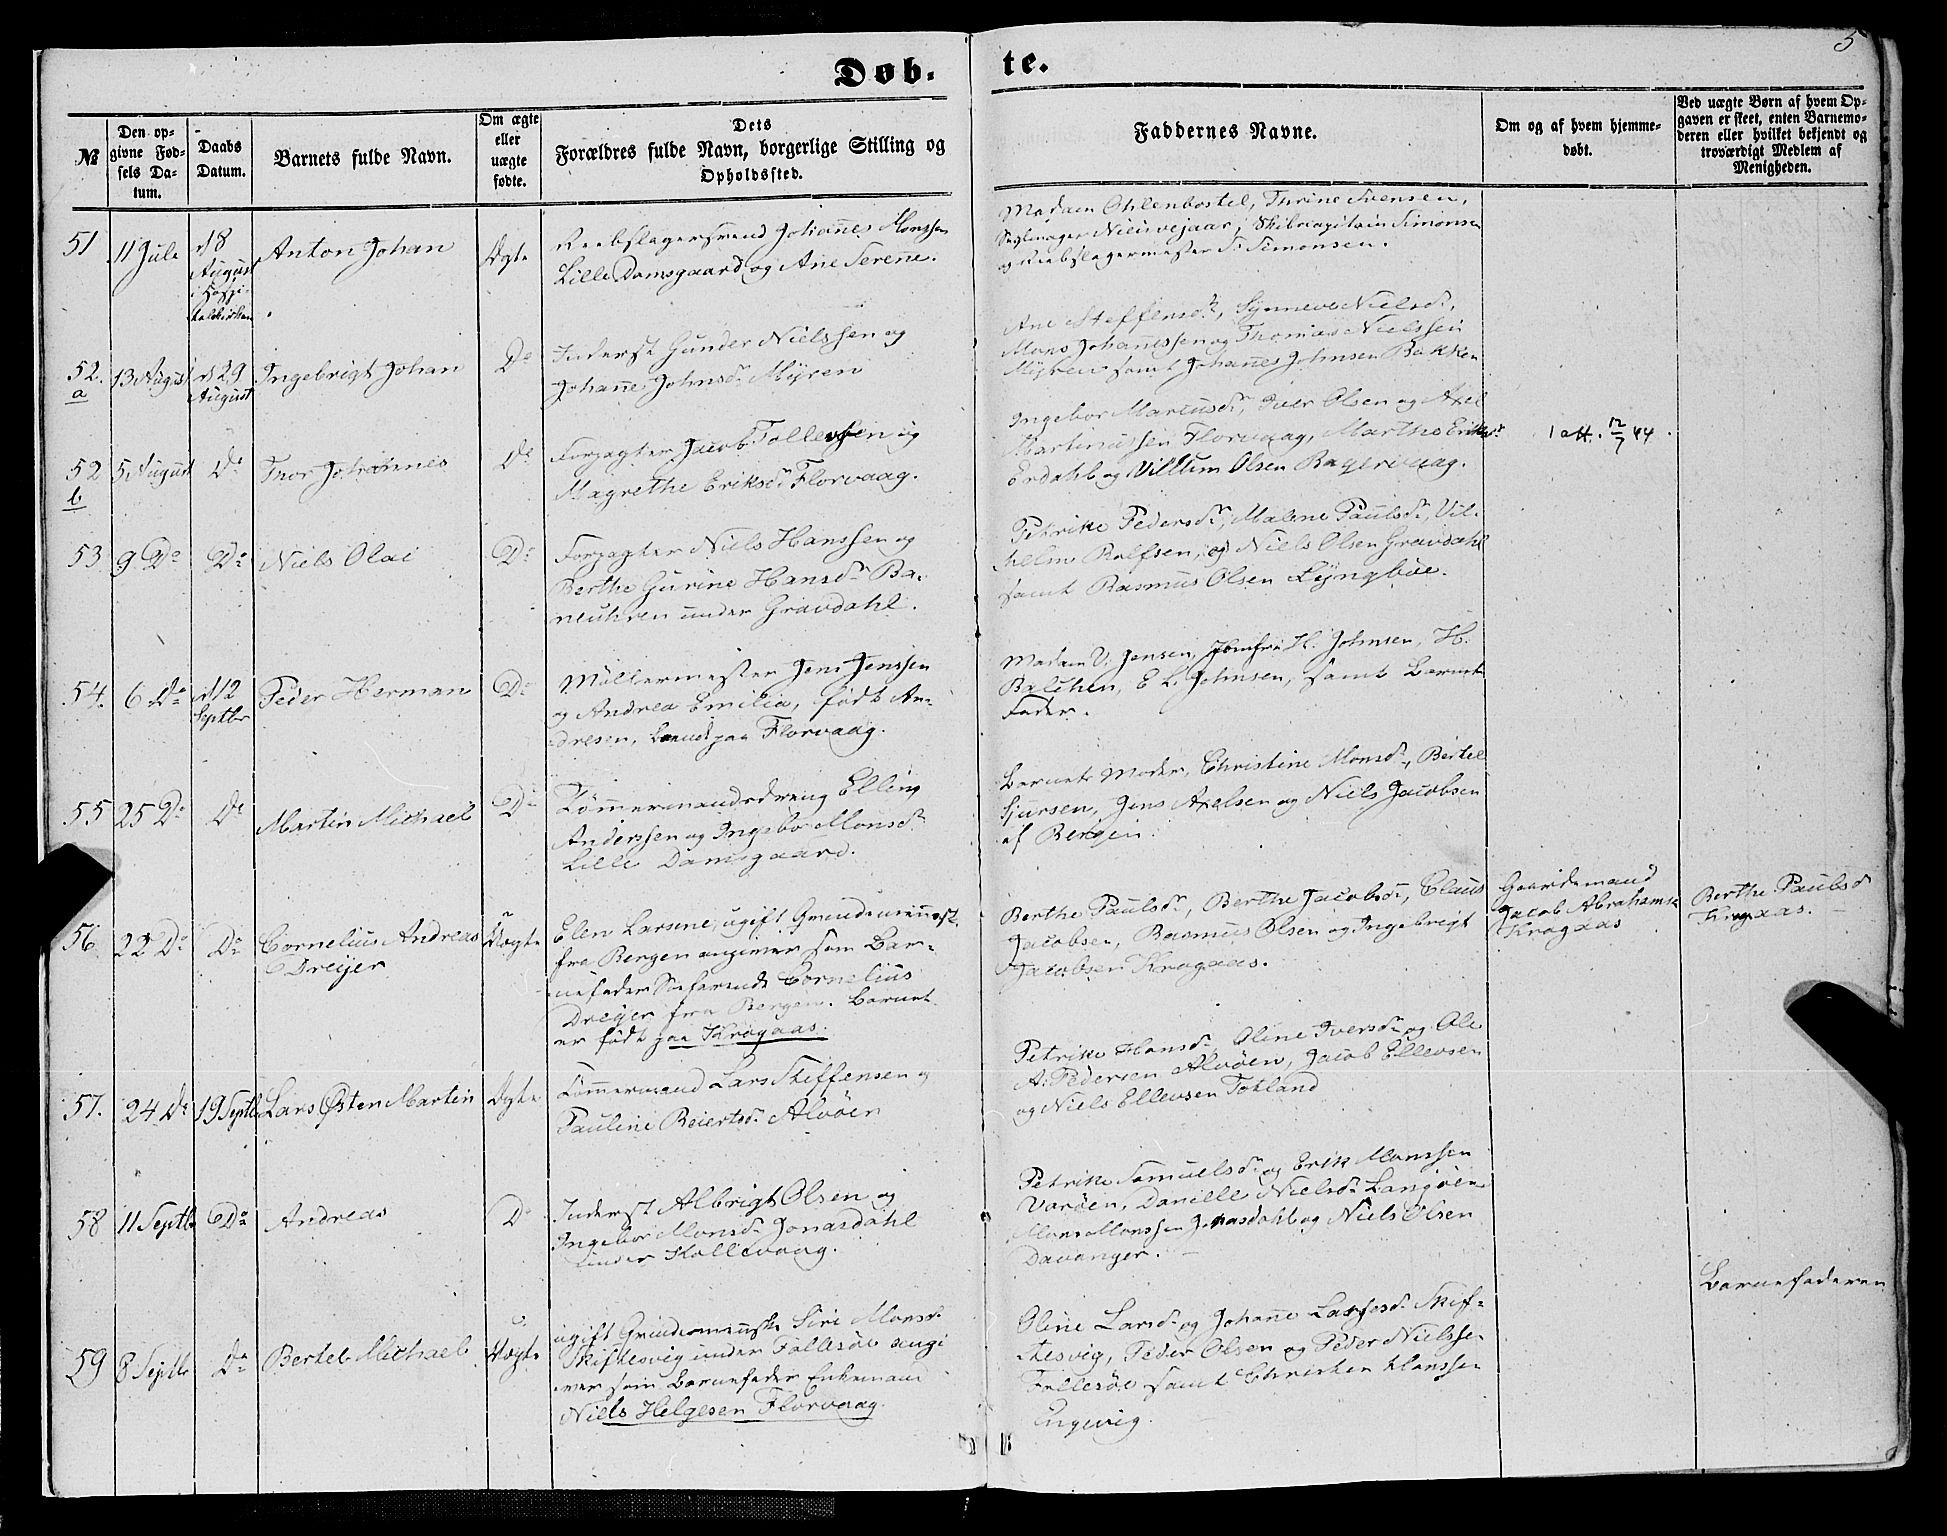 5
Døb- te.
№
Den op-
givne Fød-
sels Da-
tum.
Daabs
Datum.
Barnets fulde Navn.
Om ægte
eller
uægte
fødte.
Dets
Forældres fulde Navn, borgerlige Stilling og
Opholdssted.
Faddernes Navne.
Om og af hvem hjemme-
døbt.
Ved uægte Børn af hvem Op-
gaven er skeet, enten Barnemo-
deren eller hvilket bekjendt og
troværdigt Medlem af
Menigheden.
51
11 Jule
d 8
August
i Hospi-
talskirken
Anton Johan
Ægte
Reebslagersvend Johannes Monssen
Lille Damsgaard og Ane Serene.
Madam Ohlenbostel, Thrine Svensen,
Seglmager Niels Vejaar, Skibscapitain Simonsen
og Reebslagermester S. Simonsen.
52.
a
13 August
d 29
August
Ingebrigt Johan
Do
Inderst Gunder Nielssen og
Johanne Johnsdr Myren
Ane Steffensdr, Synneve Nielsdr,
Mons Johanessen og Thomas Nielssen
Myren samt Johannes Johnsen Bakken
52
b
5 August
Do
Thor Johannes
Do
Forpagter Jacob Tollevsen og
Magrethe Eriksdr Florvaag.
Ingebor Mariusdr, Iver Olsen og Axel
Martinussen Florvaag, Marthe Eriksdr
Erdahl og Villum Olsen Bagervaag.
1 att. 12/7 44.
53
9 Do
Do
Niels Olai
Do
Forpagter Niels Hanssen og
Berthe Gurine Hansdr Ba-
neuhren under Gravdahl.
Petrike Pedersdr, Malene Paulsdr, Vil-
helm Rolfsen, og Niels Olsen Gravdahl
samt Rasmus Olsen Lyngbøe.
54.
6 Do
d 12
Septbr
Peder Herman
Do
Møllermester Jens Jenssen
og Andrea Emilia, født An-
dresen, boende paa Florvaag.
Madam V. Jensen, Jomfru H. Johnsen, H.
Balchen, E L. Johnsen, samt Barnets
Fader.
55
25 Do
Do
Martin Michael
Do
Tømmermandsdreng Elling
Anderssen og Ingebor Monsdr
Lille Damsgaard.
Barnets Moder, Christine Monsdr, Bertel
Sjursen, Jens Axelsen og Niels Jacobsen
af Bergen.
56.
22 Do
Do
Cornelius Andreas
Dreyer
Uægte
Elen Larsene, ugift Qvindemennest.
fra Bergen angiver som Bar-
nefader Søfarende Cornelius
Dreyer fra Bergen. Barnet
er født paa Krogaas.
Berthe Paulsdr, Berthe Jacobsdr, Claus
Jacobsen, Rasmus Olsen og Ingebrigt
Jacobsen Krogaas.
Gaardmand
Jacob Abrahamsen
Krogaas
Berthe Paulsdr
Krogaas.
57.
24 Do
19 Septbr
Lars Østen Martin
Ægte
Tømmermand Lars Steffensen og
Pauline Beiertsdr Alvøen
Petrike Hansdr, Oline Iversdr og Ole
A. Pedersen Alvøen, Jacob Ellevsen
og Niels Ellevsen Tokland
58
11 Septbr
Do
Andreas
Do
Inderst Albrigt Olsen og
Ingebor Monsdr Jonasdahl
under Kollevaag.
Petrike Samuelsdr og Erik Monssen
Varøen, Danielle Nielsdr Langøen
Mons Monssen Jonasdahl og Niels Olsen
Davanger.
59
8 Septbr
Do
Bertel Michael
Uægte
ugift Qvindemenneske Siri Monsdr
Skiftesvig under Follesøe angi
ver som Barnefader Enkemand
Niels Helgesen Florvaag.
Oline Larsdr og Johanne Larsesdr Skif-
tesvig, Peder Olsen og Peder Nielssen
Follesøe samt Christen Hanssen
Engevig.
Barnefaderen